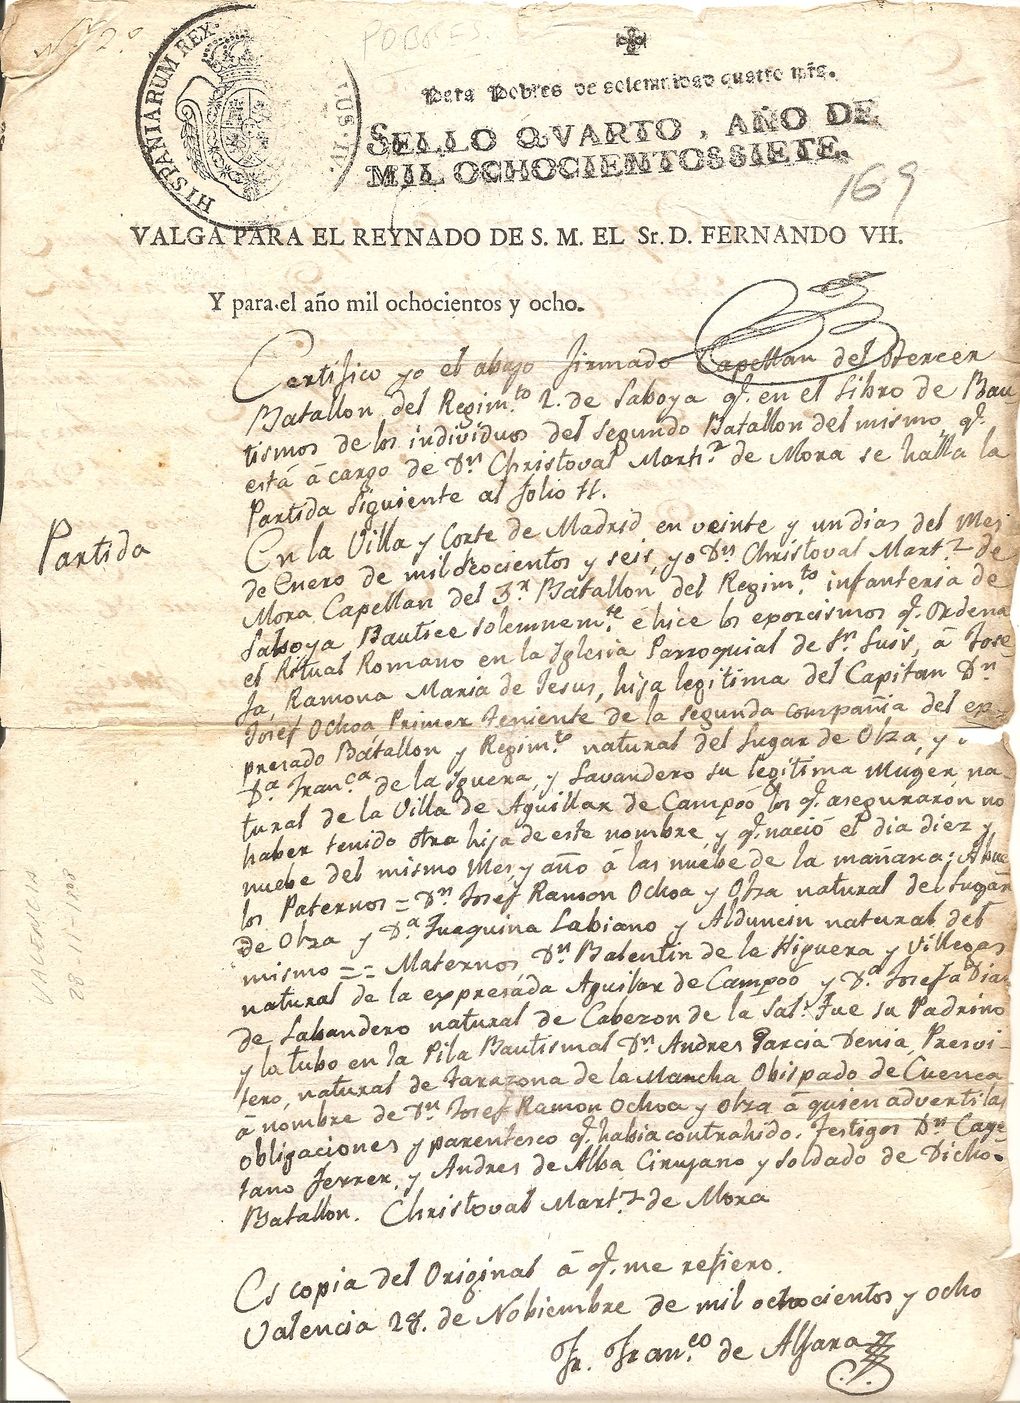 Nº 2º
POBRES
HISPANIARUM REX.
US. IV.
Para Pobres de solemnidad quatro mrs.
SELLO QVARTO, AÑO DE
MIL OCHOCIENTOS SIETE.
169
VALGA PARA EL REYNADO DE S. M. EL Sr. D. FERNANDO VII.
Y para el año mil ochocientos y ocho.
Certifico yo el abajo firmado Capellan del Tercer
Batallon del Regim.to 2. de Saboya q.e en el Libro de Bau-
tismos de los individuos del segundo Batallon del mismo, q.e
está á cargo de Dn Christoval Marti.z de Mora se halla la
Partida siguiente al folio 11.
Partida
En la Villa y Corte de Madrid en veinte y un dias del Mes
de Enero de mil ochocientos y seis, yo Dn Christoval Mart.z de
Mora Capellan del 3.r Batallon del Regim.to infanteria de
Saboya Bautice solemnem.te é hice los exorcismos q.e ordena
el Ritual Romano en la Iglesia Parroquial de Sn Luis, á Jose-
fa, Ramona Maria de Jesus, hija legitima del Capitan Dn
Josef Ochoa Primer teniente de la segunda compañia del ex-
presado Batallon y Regim.to natural del Lugar de Olza, y
Da Fran.ca de la Iguera, y Lavandero su legitima Muger, na-
tural de la Villa de Aguillar de Campoó los q.e aseguraron no
haber tenido otra hija de este nombre, y q.e nació el dia diez y
nuebe del mismo Mes y año á las nuebe de la mañana; Abue-
los Paternos = Dn Josef Ramon Ochoa y Olza natural del Lugar
de Olza y Da Juaquina Labiano y Alduncin natural del
mismo = = Maternos, Dn Balentin de la Higuera y Villegas
natural de la expresada Aguilar de Campoó y Da Josefa Dia-
de Labandero natural de Cabezon de la Sal. Fue su Padrino
y la tubo en la Pila Bautismal Dn Andres Garcia Denia, Presvi-
tero, natural de Tarazona de la Mancha Obispado de Cuenca
á nombre de Dn Josef Ramon Ochoa y Olza á quien adverti las
obligaciones y parentesco q.e habia contrahido. Testigos Dn Caye-
tano Ferrer, y Andres de Alba Cirujano y soldado de Dicho
Batallon. Christoval Mart.z de Mora
Es copia del Original á q.e me refiero.
Valencia 28. de Nobiembre de mil ochocientos y ocho
Fr. Fran.co de Alfara
VALENCIA
28-11-1808